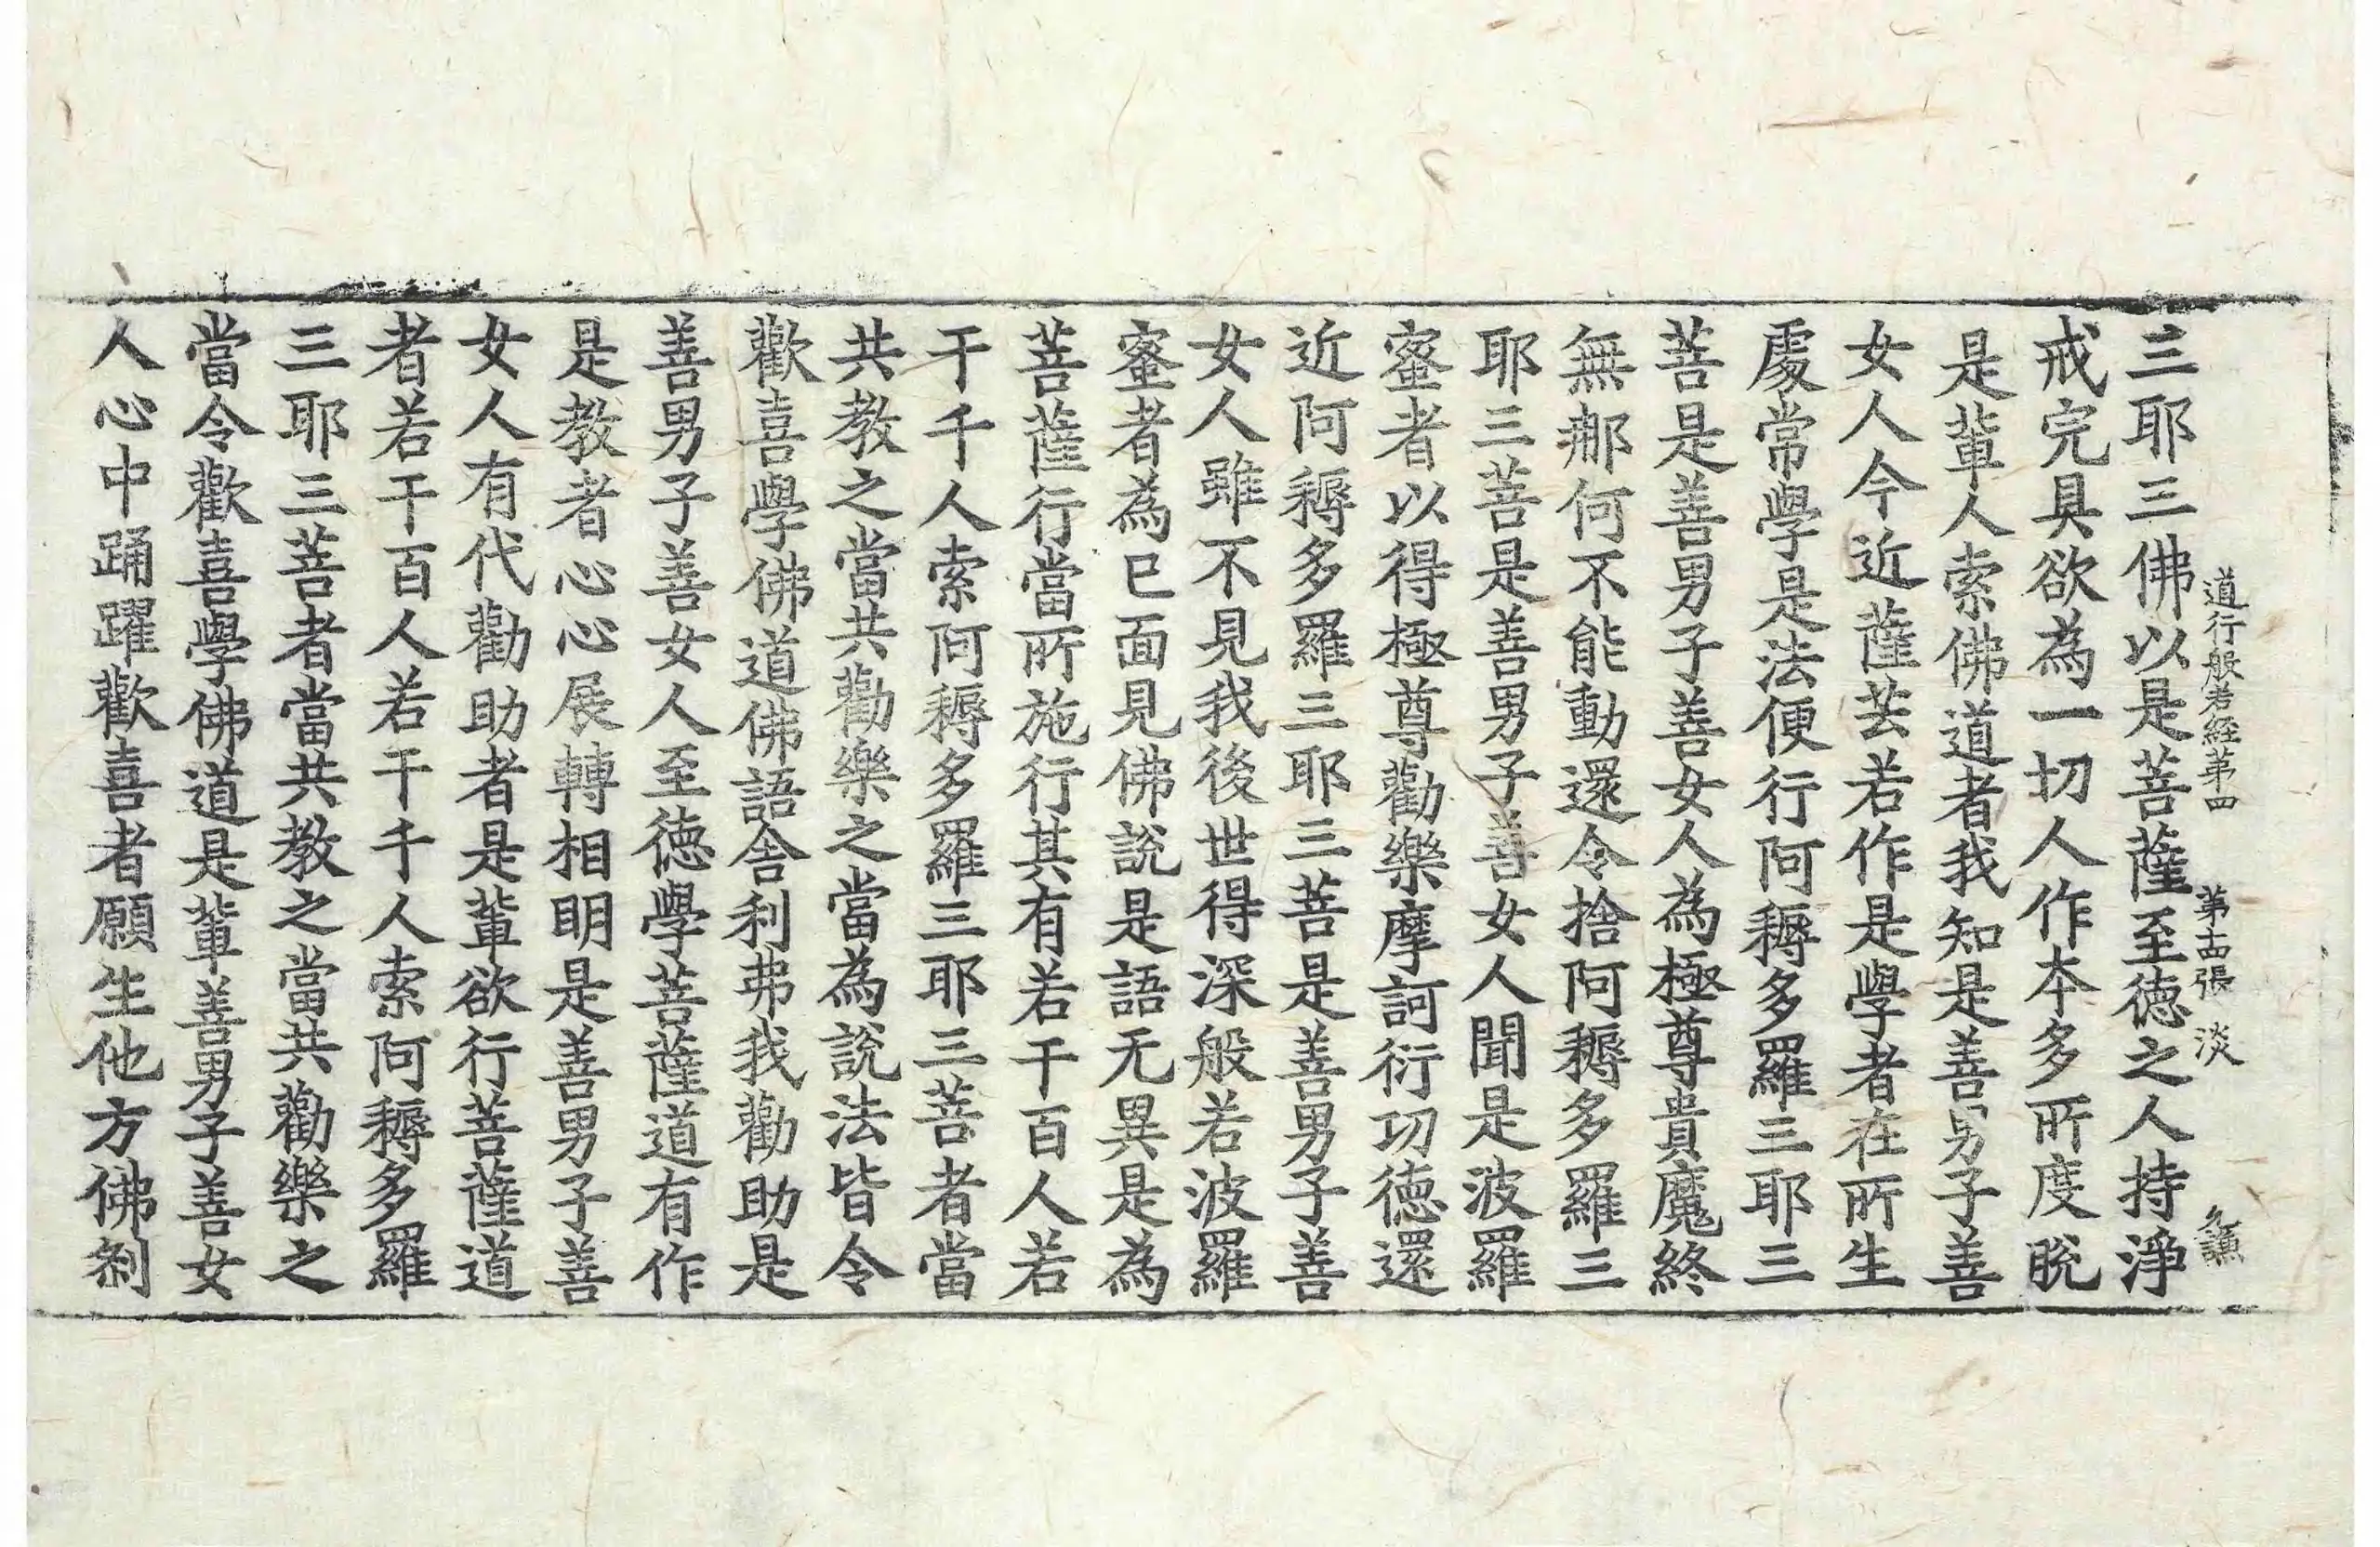 三耶三佛以是菩薩至德之人持淨
道行般若経第四　第十四張　淡
戒完具欲為一切人作本多所度脫
是輩人索佛道者我知是善男子善
女人今近薩芸若作是學者在所生
處常學是法便行阿耨多羅三耶三
菩是善男子善女人為極尊貴魔終
無那何不能動還令捨阿耨多羅三
耶三菩是善男子善女人聞是波羅
蜜者以得極尊勸樂摩訶衍功徳還
近阿耨多羅三耶三菩是善男子善
女人雖不見我後世得深般若波羅
蜜者為已面見佛說是語无異是為
菩薩行當所施行其有若干百人若
干千人索阿耨多羅三耶三菩者當
共教之當共勸樂之當為說法皆令
歡喜學佛道佛語舍利弗我勸助是
善男子善女人至徳學菩薩道有作
是教者心心展轉相明是善男子善
女人有代勸助者是輩欲行菩薩道
者若干百人若干千人索阿耨多羅
三耶三菩者當共教之當共勸樂之
當令歡喜學佛道是輩善男子善女
人心中踊躍歡喜者願生他方佛剎